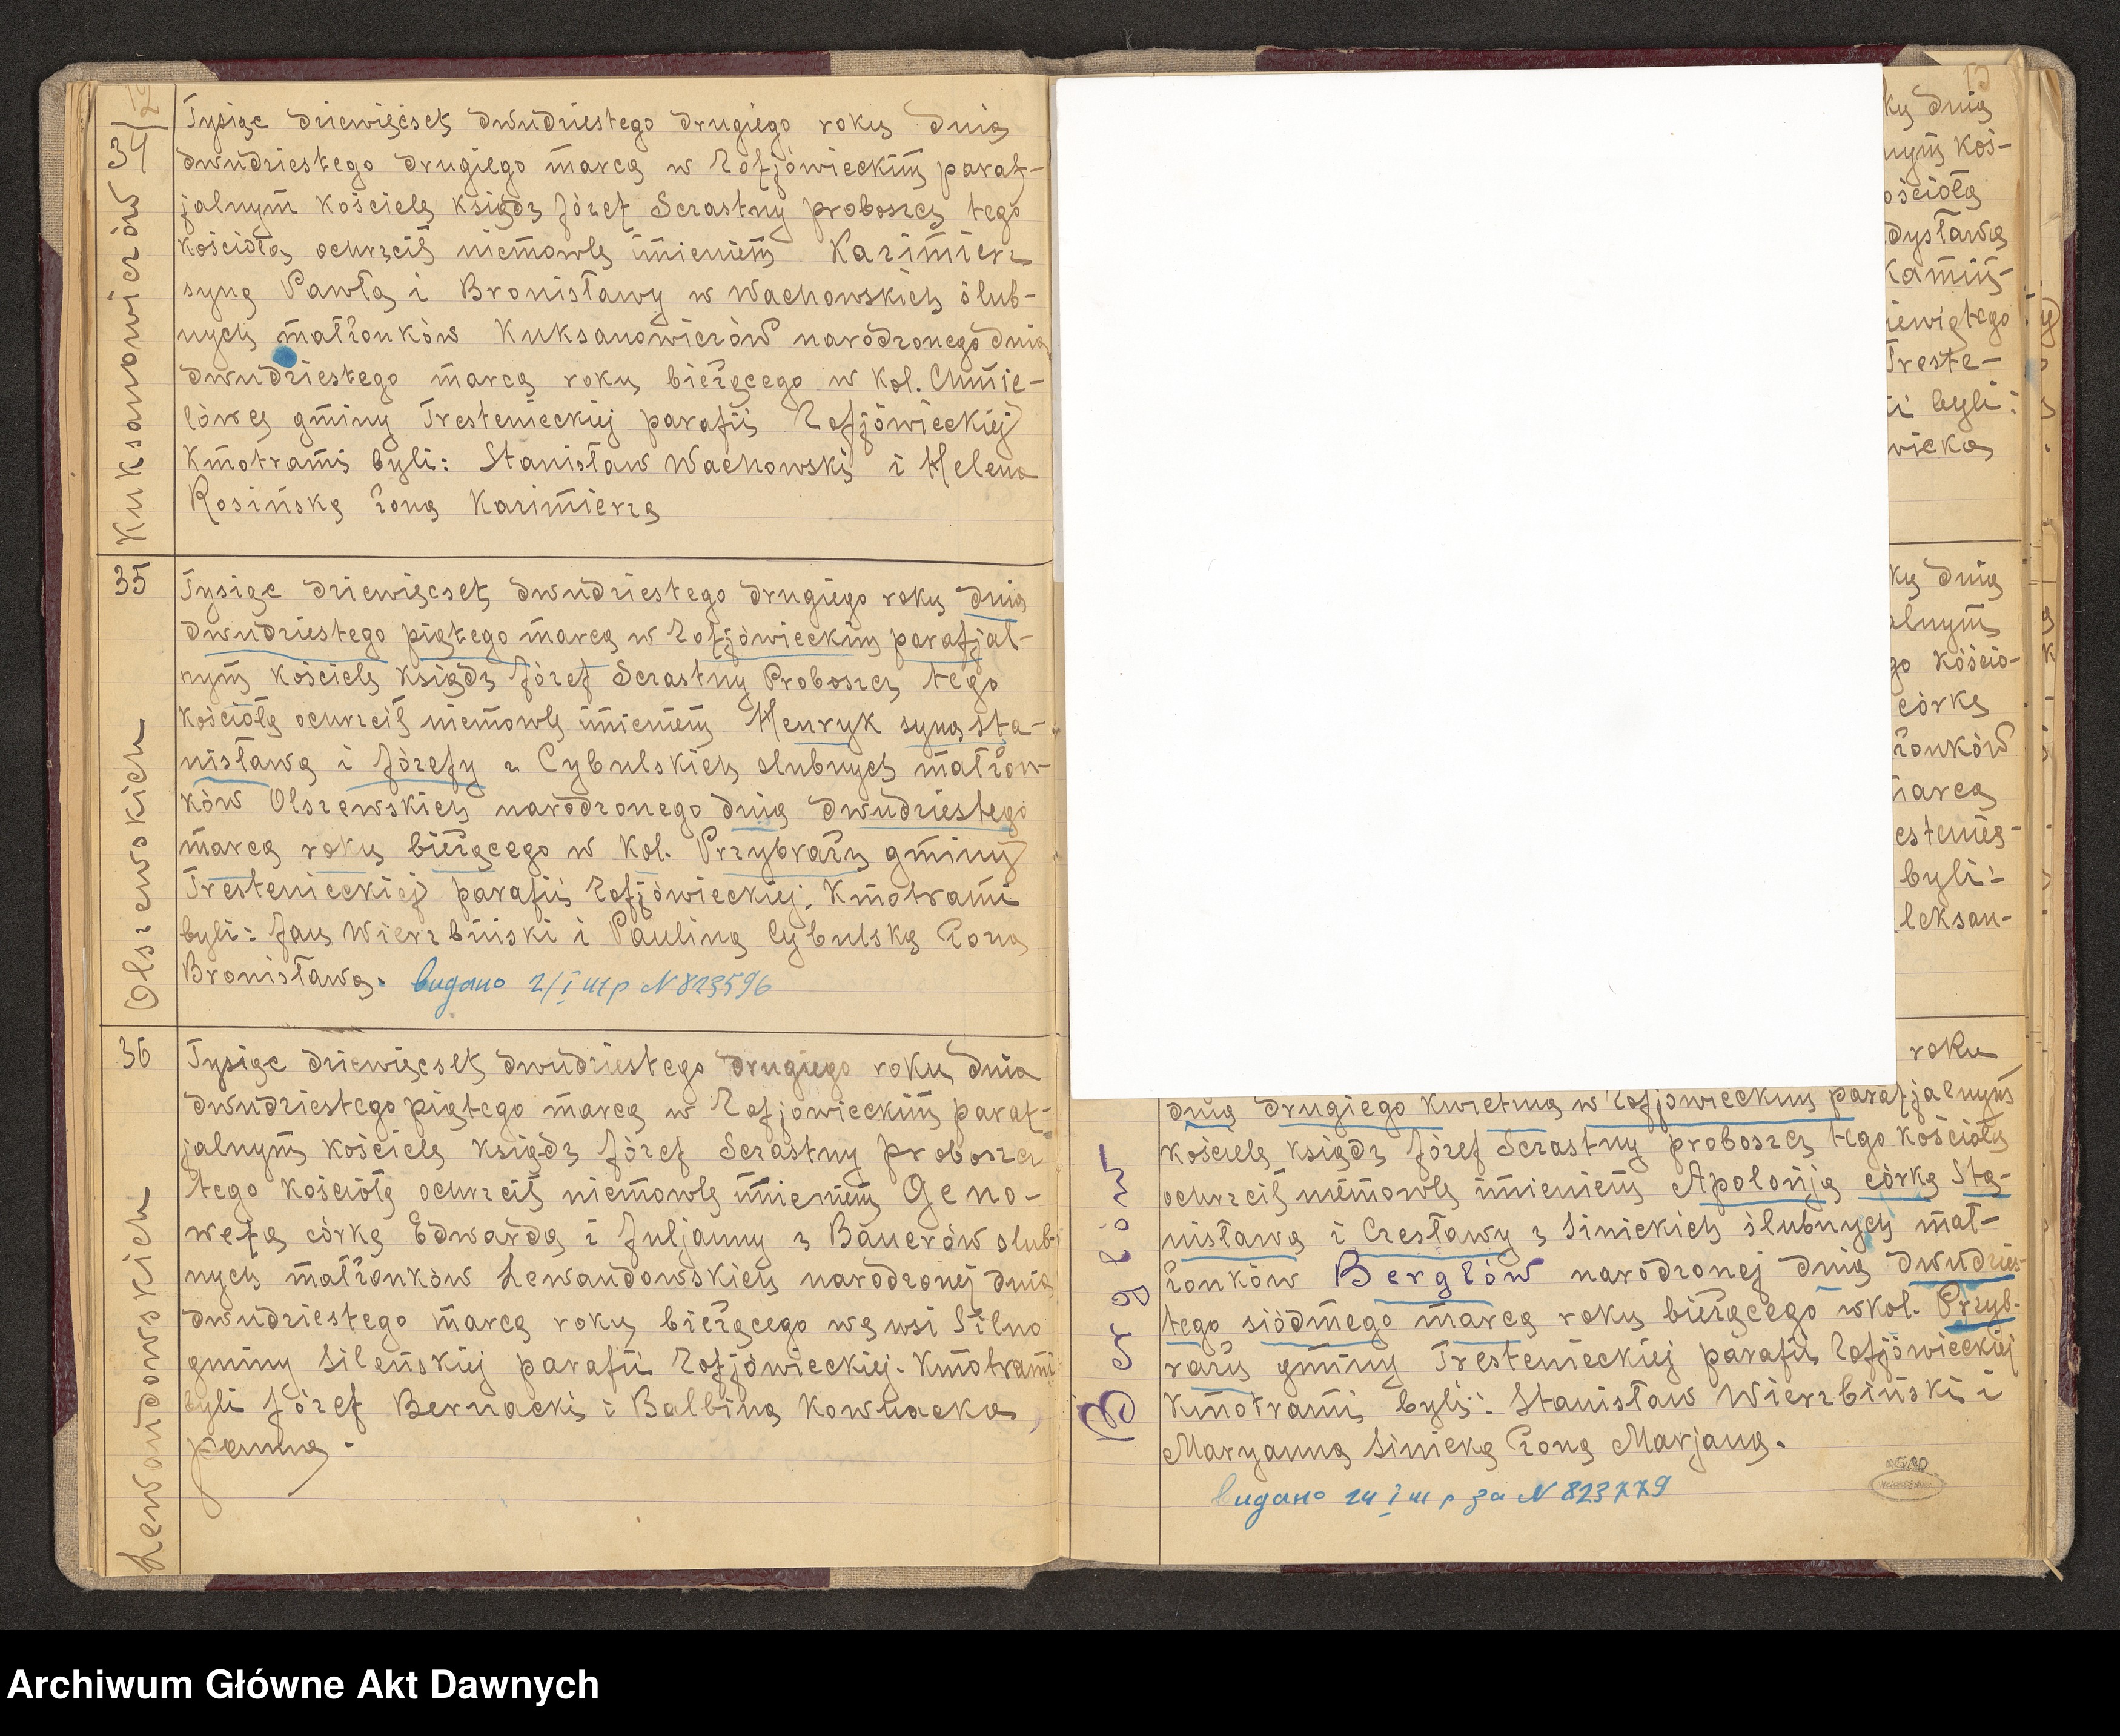 34
Kuksanowiczów
Tysiąc dziewięćset dwudziestego drugiego roku dnia
dwudziestego drugiego marca w Zofjówieckim paraf-
jalnym kościele ksiądz Józef Szrastny proboszcz tego
kościoła ochrzcił niemowlę imieniem Kazimierz
syna Pawła i Bronisławy w Wachowskich ślub-
nych małżonków Kuksanowiczów narodzonego dnia
dwudziestego marca roku bieżącego w Kol. Chmie-
lówce gminy Trestenieckiej parafii Zofjówieckiej
Kmotrami byli: Stanisław Wachowski i Helena
Rosińska żona Kazimierza
35
Olszewskich
Tysiąc dziewięcset dwudziestego drugiego roku dnia
dwudziestego piątego marca w Zofjówieckim parafjal-
nym kościele ksiądz Józef Szrastny Proboszcz tego
kościoła ochrzcił niemowlę imieniem Henryk syna Sta-
nisława i Józefy z Cybulskich slubnych małżon-
ków Olszewskich narodzonego dnia dwudziestego
marca roku bieżącego w Kol. Przybraży gminy
Trestenieckiej parafii Zofjówieckiej. Kmotrami
byli: Jan Wierzbiński i Paulina Cybulska żona
Bronisława. выдано 2/I м р N 823596
36
Lewandowskich
Tysiąc dziewięcset dwudziestego drugiego roku dnia
dwudziestego piątego marca w Zofjowieckim paraf-
jalnym kościele ksiądz Józef Szrastny proboszcz
tego kościoła ochrzcił niemowlę imieniem Geno-
wefa córka Edwarda i Juljanny z Bauerów slub-
nych małżonków Lewandowskich narodzonej dnia
dwudziestego marca roku bieżącego we wsi Silno
gminy Sileńskiej parafii Zofjówieckiej. Kmotrami
byli Józef Bernacki i Balbina Kownacka,
panna.
ku dnia
nym koś-
ościoła
dysława
Kamiń-
iewiętego
Treste-
i byli:
wicka
ku dnia
alnym
go kościo-
córkę
żonków
marca
estenie-
byli:
leksan-
roku
Berglów
dnia drugiego kwietnia w Zofjowieckim parafjalnym
kościele ksiądz Józef Szrastny proboszcz tego kościoła
ochrzcił niemowlę imieniem Apolonja córka Sta-
nisława i Czesławy z Sinickich ślubnych mał-
żonków Berglów narodzonej dnia dwudzies-
tego siódmego marca roku bieżącego w kol. Przyb-
raży gminy Trestenieckiej parafii Zofjówieckiej
Kmotrami byli: Stanisław Wierzbiński i
Maryanna Sinicka żona Marjana.
выдано 24 I м р за N 823779
Archiwum Główne Akt Dawnych